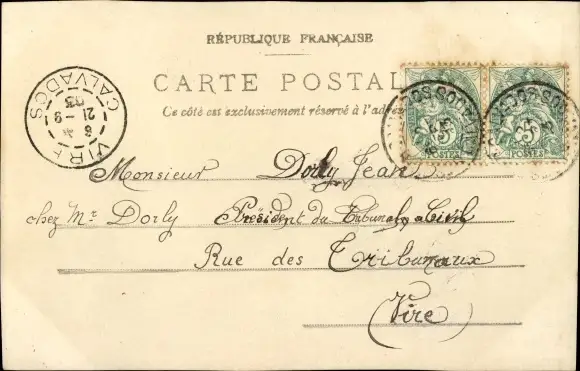 RÉPUBLIQUE FRANÇAISE
CARTE POSTAL
Ce côté est exclusivement réservé à l'adres
VIRE
CALVADOS
21 - 9
03
5 5
POSTES POSTES
Monsieur Dorly Jean
chez Mr Dorly Président du Tribunal Civil
Rue des Tribunaux
(Vire)